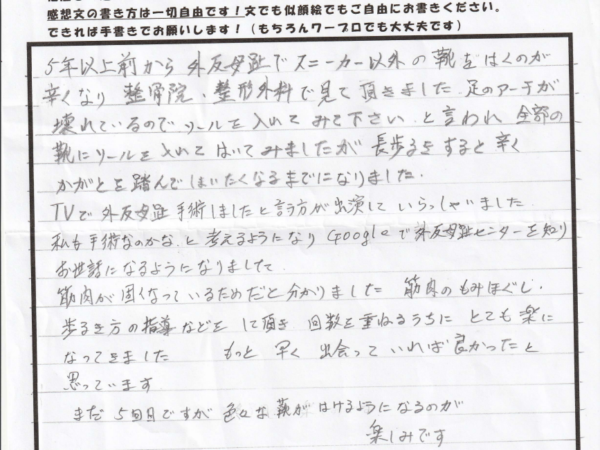 感想文の書き方は一切自由です！文でも似顔絵でもご自由にお書きください。
できれば手書きでお願いします！（もちろんワープロでも大丈夫です）
5年以上前から 外反母趾でスニーカー以外の靴をはくのが
辛くなり 整骨院、整形外科で見て頂きました。足のアーチが
壊れているのでソールを入れてみて下さい と言われ 全部の
靴にソールを入れてはいてみましたが 長歩きをすると辛く
かがとを踏んではいたくなるまでになりました。
TVで外反母趾手術しましたと言う方が出演していらっしゃいました
私も手術なのかな と考えるようになり Googleで外反母趾センターを知り
お世話になるようになりまして
筋肉が固くなっているためだと分かりました 筋肉のもみほぐし、
歩き方の指導などをして頂き 回数を重ねるうちに とても楽に
なってきました もっと早く出会っていれば良かったと
思っています
まだ5回目ですが 色々な靴がはけるようになるのが
楽しみです